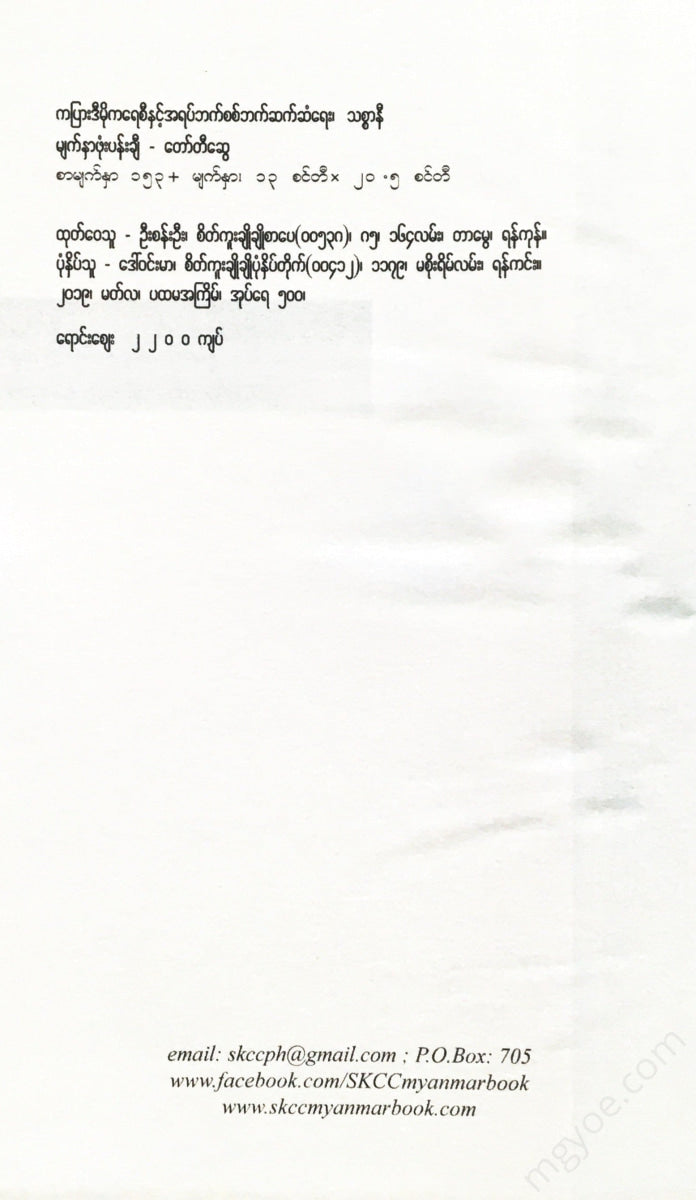 ကပြားဒီမိုကရေစီနှင့်အရပ်ဘက်စစ်ဘက်ဆက်ဆံရေး၊ သစ္စာနီ
မျက်နှာဖုံးပန်းချီ - တော်တီဆွေ
စာမျက်နှာ ၁၅၃ + မျက်နှာ၊ ၁၃ စင်တီ × ၂၀ .၅ စင်တီ
ထုတ်ဝေသူ - ဦးစန်းဦး၊ စိတ်ကူးချိုချိုစာပေ(၀၀၅၃၈)၊ ဂ၅၊ ၁၆၄လမ်း၊ တာမွေ၊ ရန်ကုန်။
ပုံနှိပ်သူ - ဒေါ်ဝင်းမာ၊ စိတ်ကူးချိုချိုပုံနှိပ်တိုက်(၀၀၄၁၂)၊ ၁၁၇၉၊ မစိုးရိမ်လမ်း၊ ရန်ကင်း။
၂၀၁၉၊ မတ်လ၊ ပထမအကြိမ်၊ အုပ်ရေ ၅၀၀၊
ရောင်းဈေး ၂ ၂ ၀ ၀ ကျပ်
email: skccph@gmail.com ; P.O.Box: 705
www.facebook.com/SKCCmyanmarbook
www.skccmyanmarbook.com
mgyoe.com